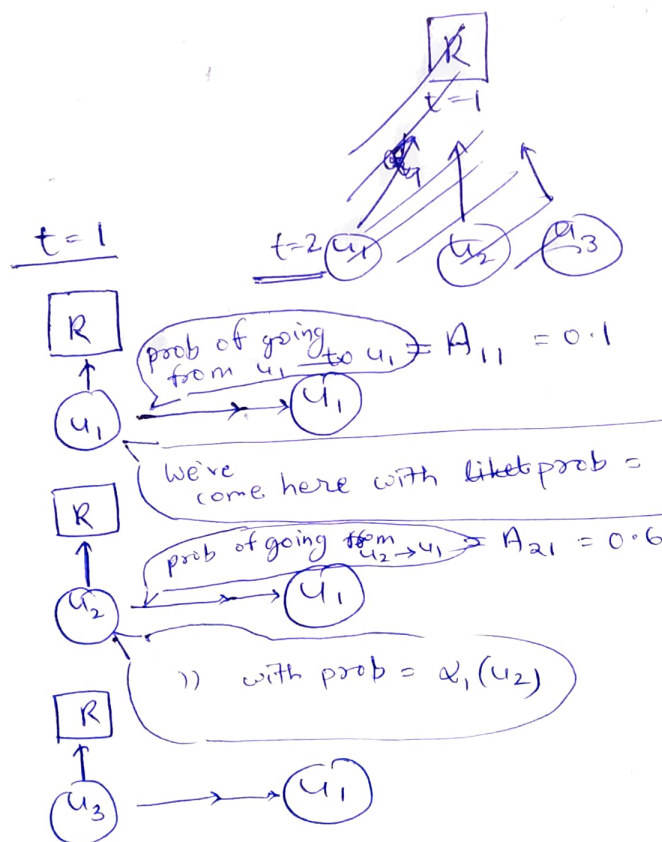 R
t=1
t=2 u1 u2 u3
t = 1
R
prob of going
from u1 to u1 = A11 = 0.1
u1 u1
we've
come here with prob =
R
prob of going from
u2 → u1 = A21 = 0.6
u2 u1
)) with prob = α1(u2)
R
u3 u1